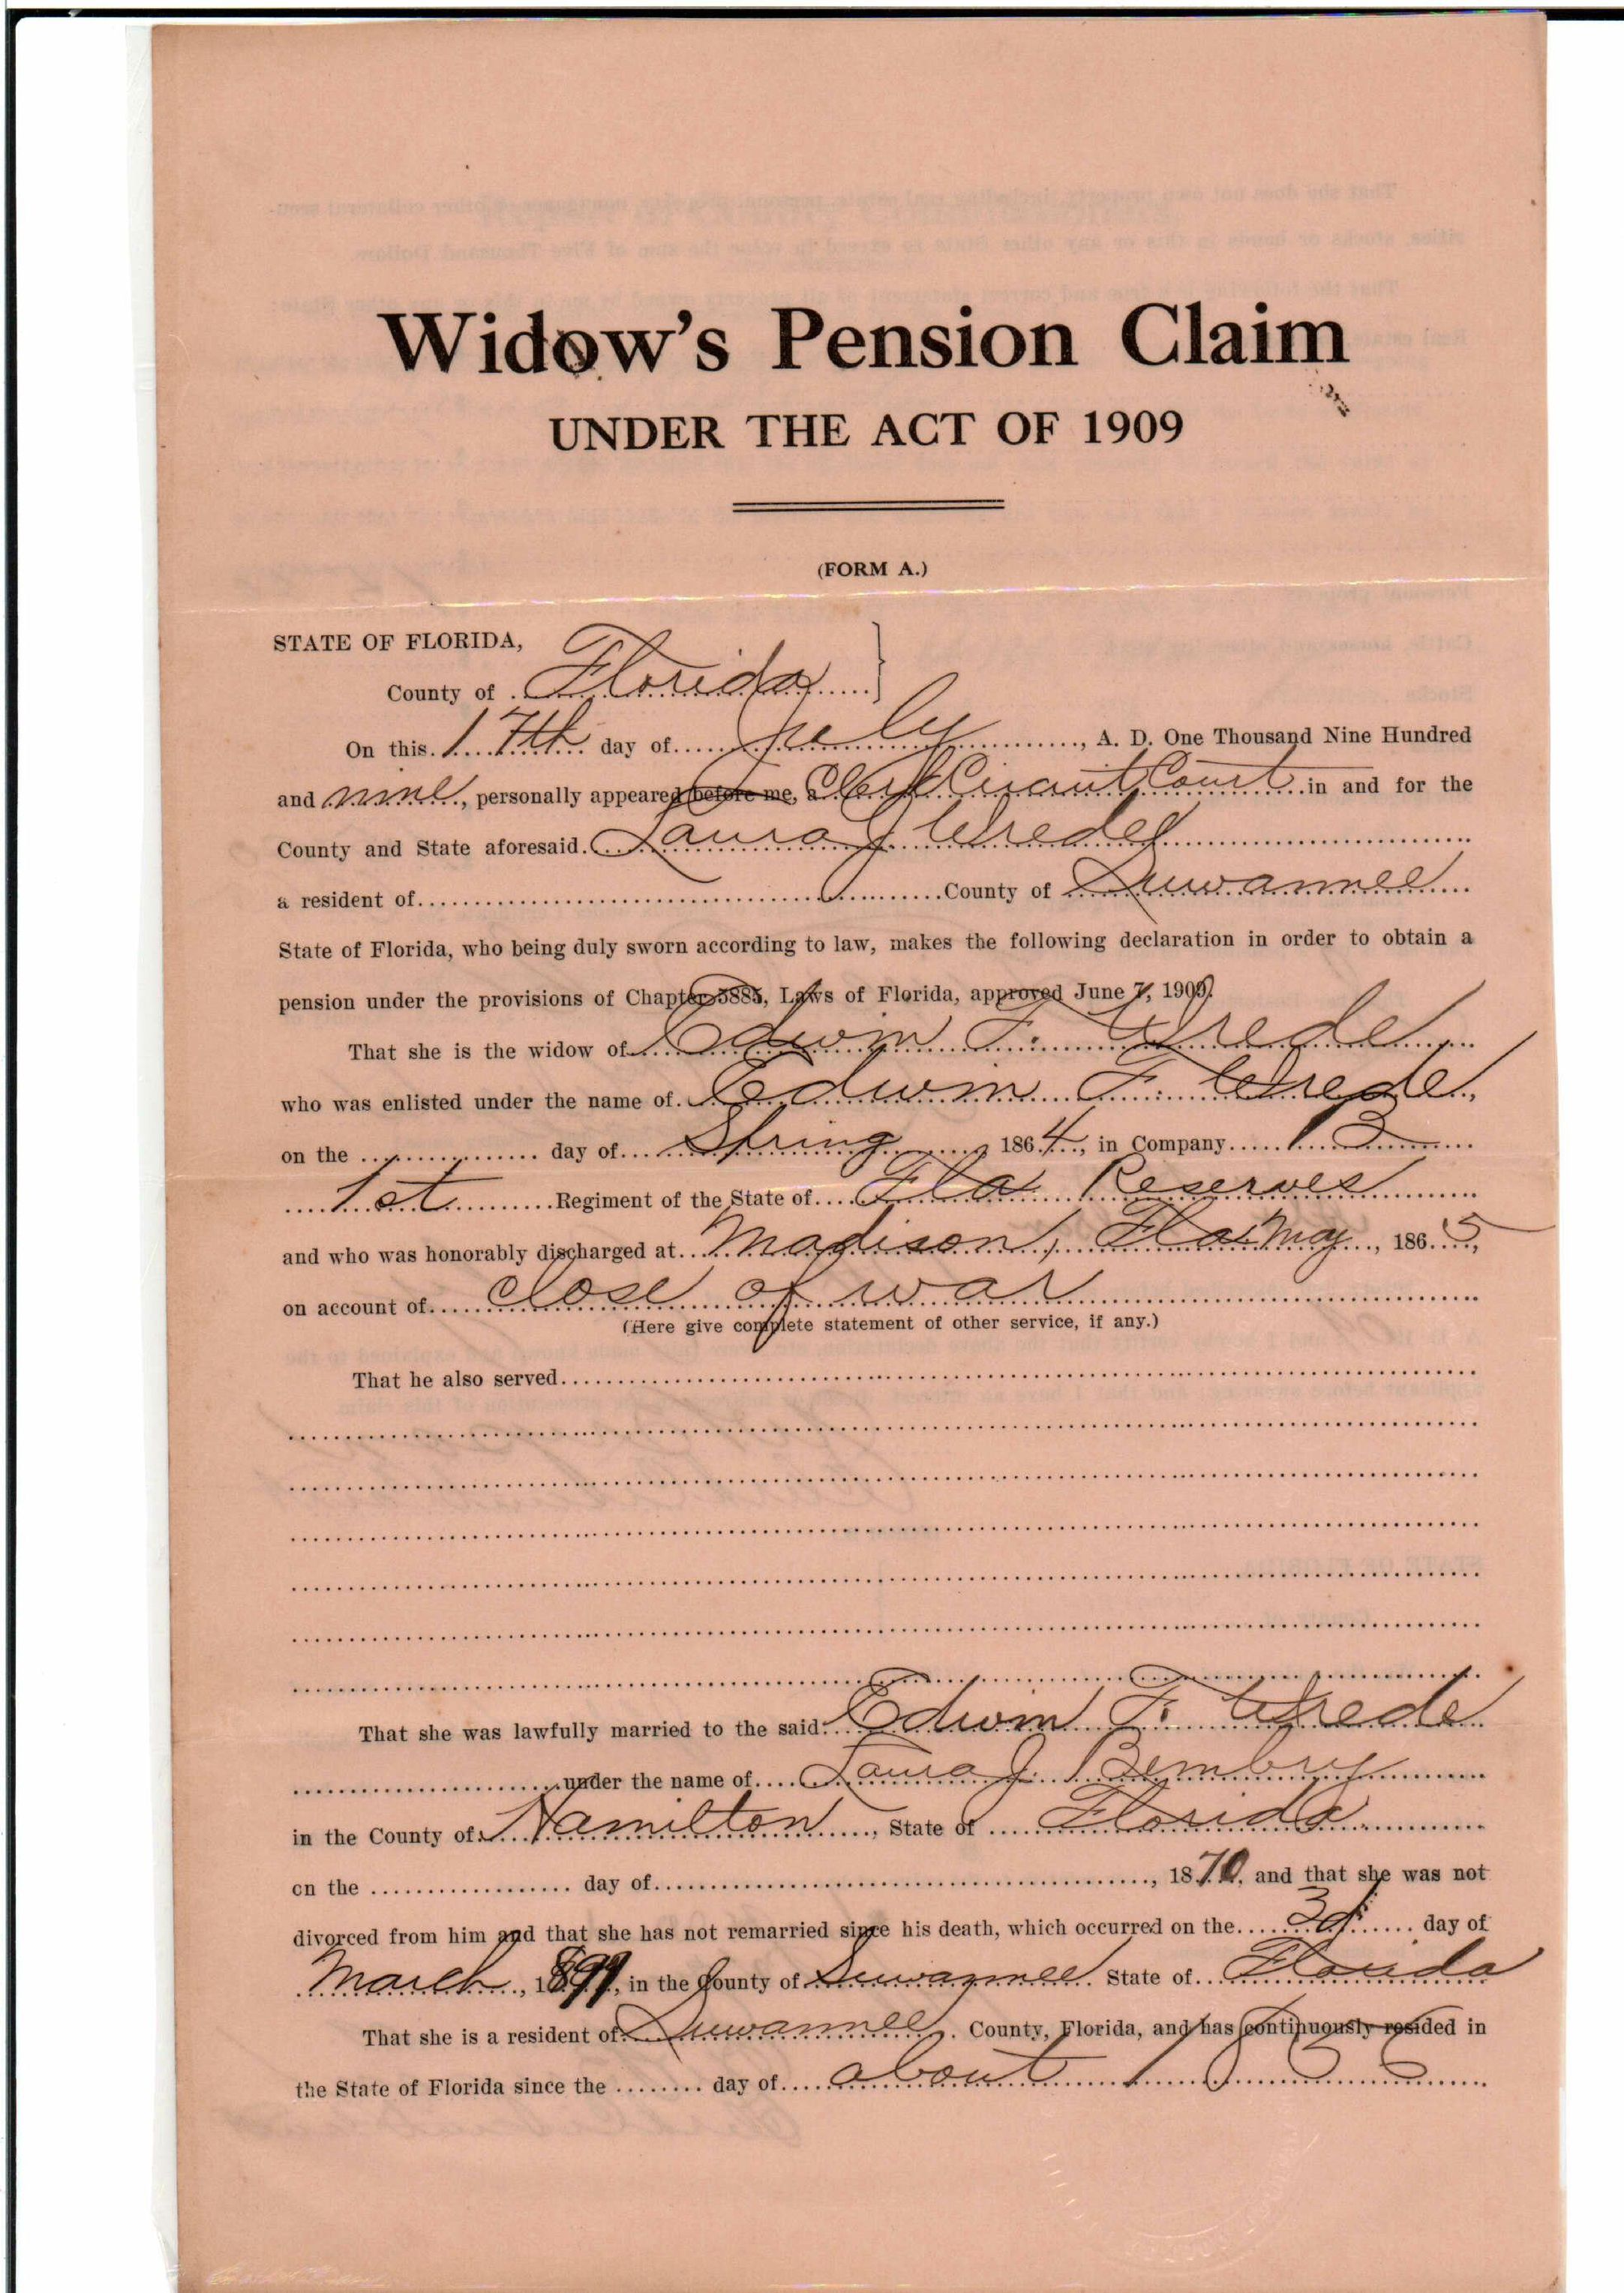 Widow's Pension Claim
UNDER THE ACT OF 1909
(FORM A.)
STATE OF FLORIDA,
County of Florida
On this 17th day of July, A. D. One Thousand Nine Hundred
and nine, personally appeared before me, a Clerk Circuit Court in and for the
County and State aforesaid. Laura J. Wrede
a resident of County of Suwannee
State of Florida, who being duly sworn according to law, makes the following declaration in order to obtain a
pension under the provisions of Chapter 5885, Laws of Florida, approved June 7, 1909.
That she is the widow of Edwin F. Wrede
who was enlisted under the name of Edwin F. Wrede,
on the day of Spring 1864, in Company B
1st Regiment of the State of Fla Reserves
and who was honorably discharged at Madison, Fla May, 1865,
on account of close of war
(Here give complete statement of other service, if any.)
That he also served
That she was lawfully married to the said Edwin F. Wrede
under the name of Laura J. Bembry
in the County of Hamilton, State of Florida
on the day of, 1870, and that she was not
divorced from him and that she has not remarried since his death, which occurred on the 3d day of
March, 1899, in the County of Suwannee State of Florida
That she is a resident of Suwannee County, Florida, and has continuously resided in
the State of Florida since the day of about